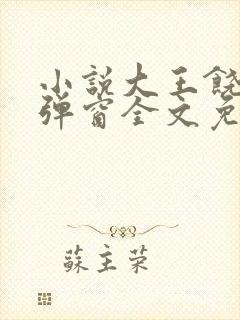 小说大王饶
弹窗全文免
蘇主荣